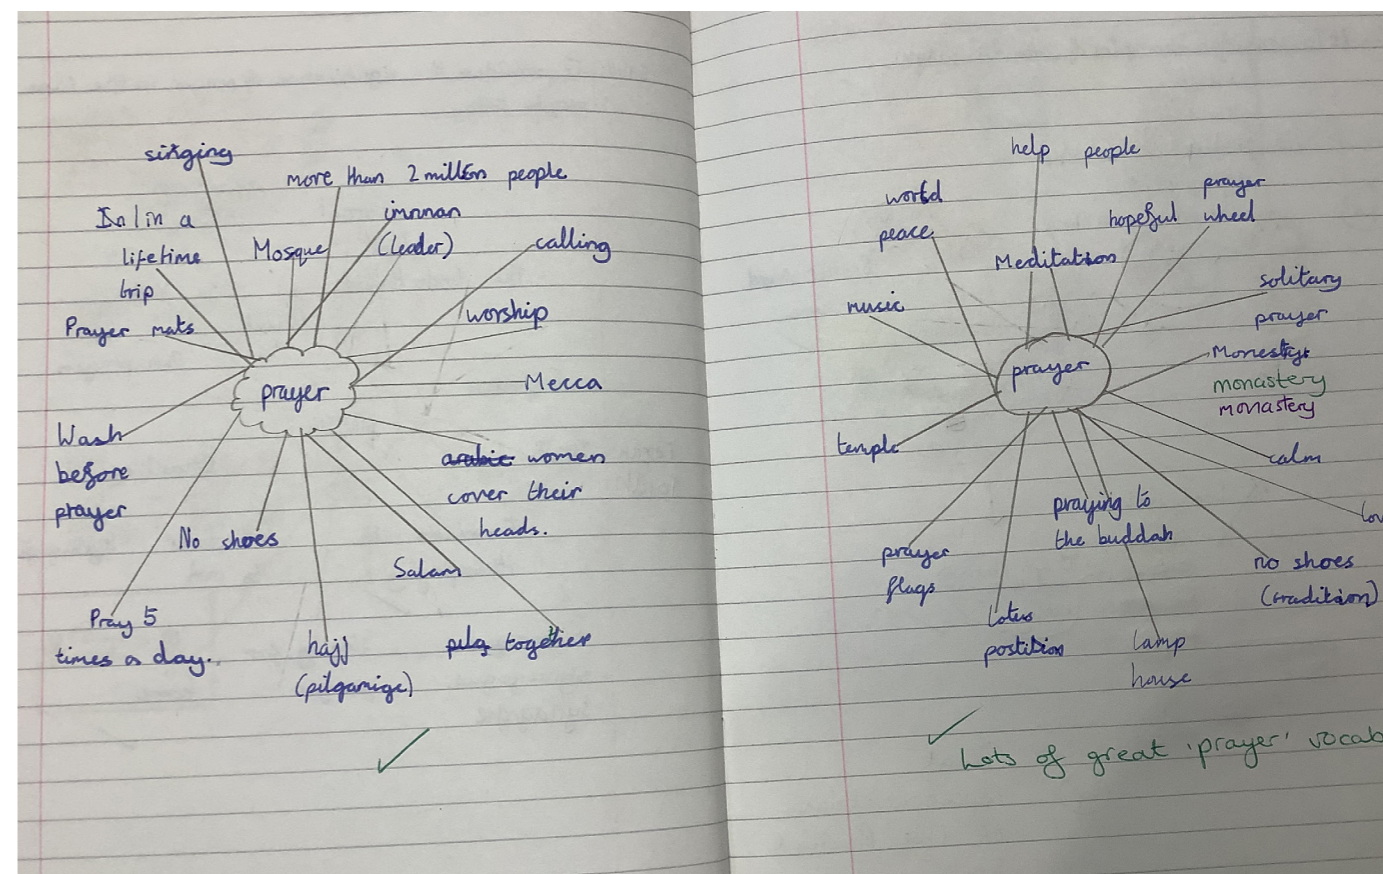 singing
more than 2 million people
1 in a
lifetime
trip
Mosque
imman
(leader)
calling
Prayer mats
worship
prayer
Mecca
Wash
before
prayer
arabic women
cover their
heads.
No shoes
Salam
Pray 5
times a day.
hajj
(pilgamige)
pilg together
help people
world
peace
hopeful
prayer
wheel
Meditation
music
solitary
prayer
prayer
Monestry
monastery
monastery
temple
calm
praying to
the buddah
prayer
flags
no shoes
(tradition)
lotus
postition
lamp
house
Lots of great 'prayer' vocab